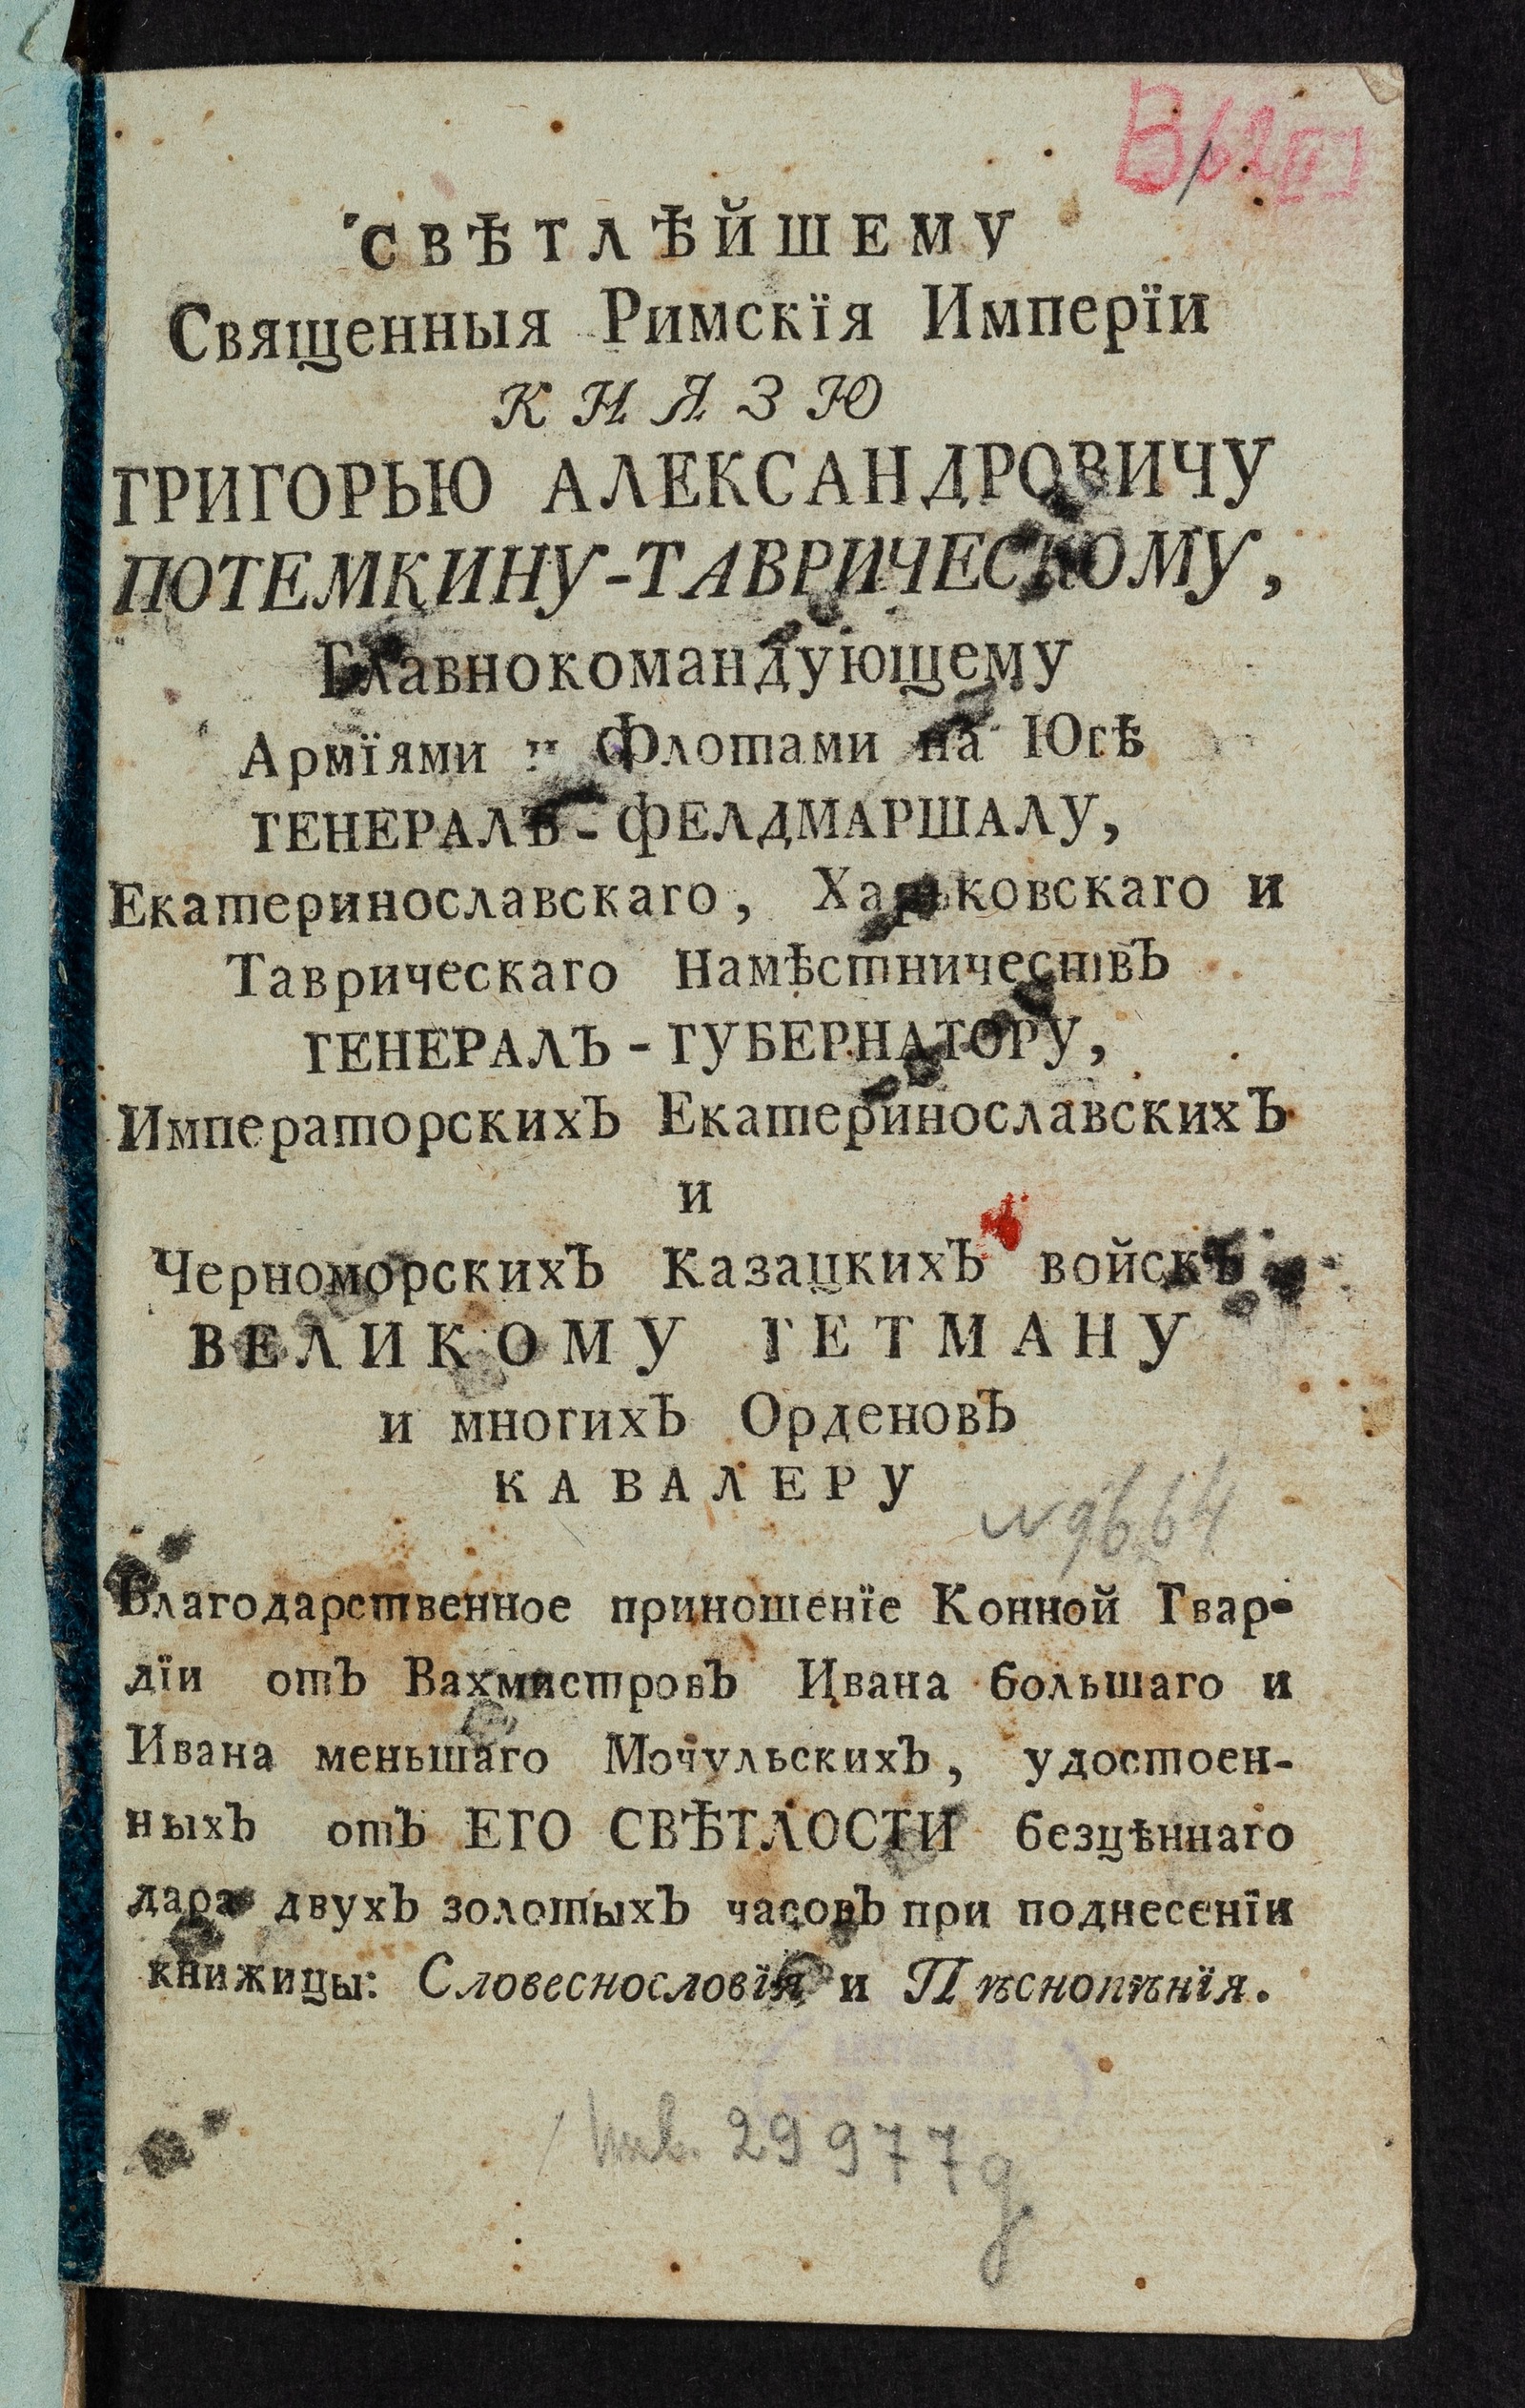 В/62[II]
СВѢТЛѢЙШЕМУ
Священныя Римскїя Имперїи
КНЯЗЮ
ГРИГОРЬЮ АЛЕКСАНДРОВИЧУ
ПОТЕМКИНУ-ТАВРИЧЕСКОМУ,
Главнокомандующему
Армїями и Флотами на Югѣ
ГЕНЕРАЛЪ-ФЕЛДМАРШАЛУ,
Екатеринославскаго, Харьковскаго и
Таврическаго Намѣстничествъ
ГЕНЕРАЛЪ-ГУБЕРНАТОРУ,
Императорскихъ Екатеринославскихъ
и
Черноморскихъ Казацкихъ войскъ
ВЕЛИКОМУ ГЕТМАНУ
и многихъ Орденовъ
КАВАЛЕРУ
N 9664
Благодарственное приношенїе Конной Гвар-
дїи отъ Вахмистровъ Ивана большаго и
Ивана меньшаго Мочульскихъ, удостоен-
ныхъ отъ ЕГО СВѢТЛОСТИ безцѣннаго
дара двухъ золотыхъ часовъ при поднесенїи
книжицы: Словеснословїя и Пѣснопѣнїя.
Инв. 29977д